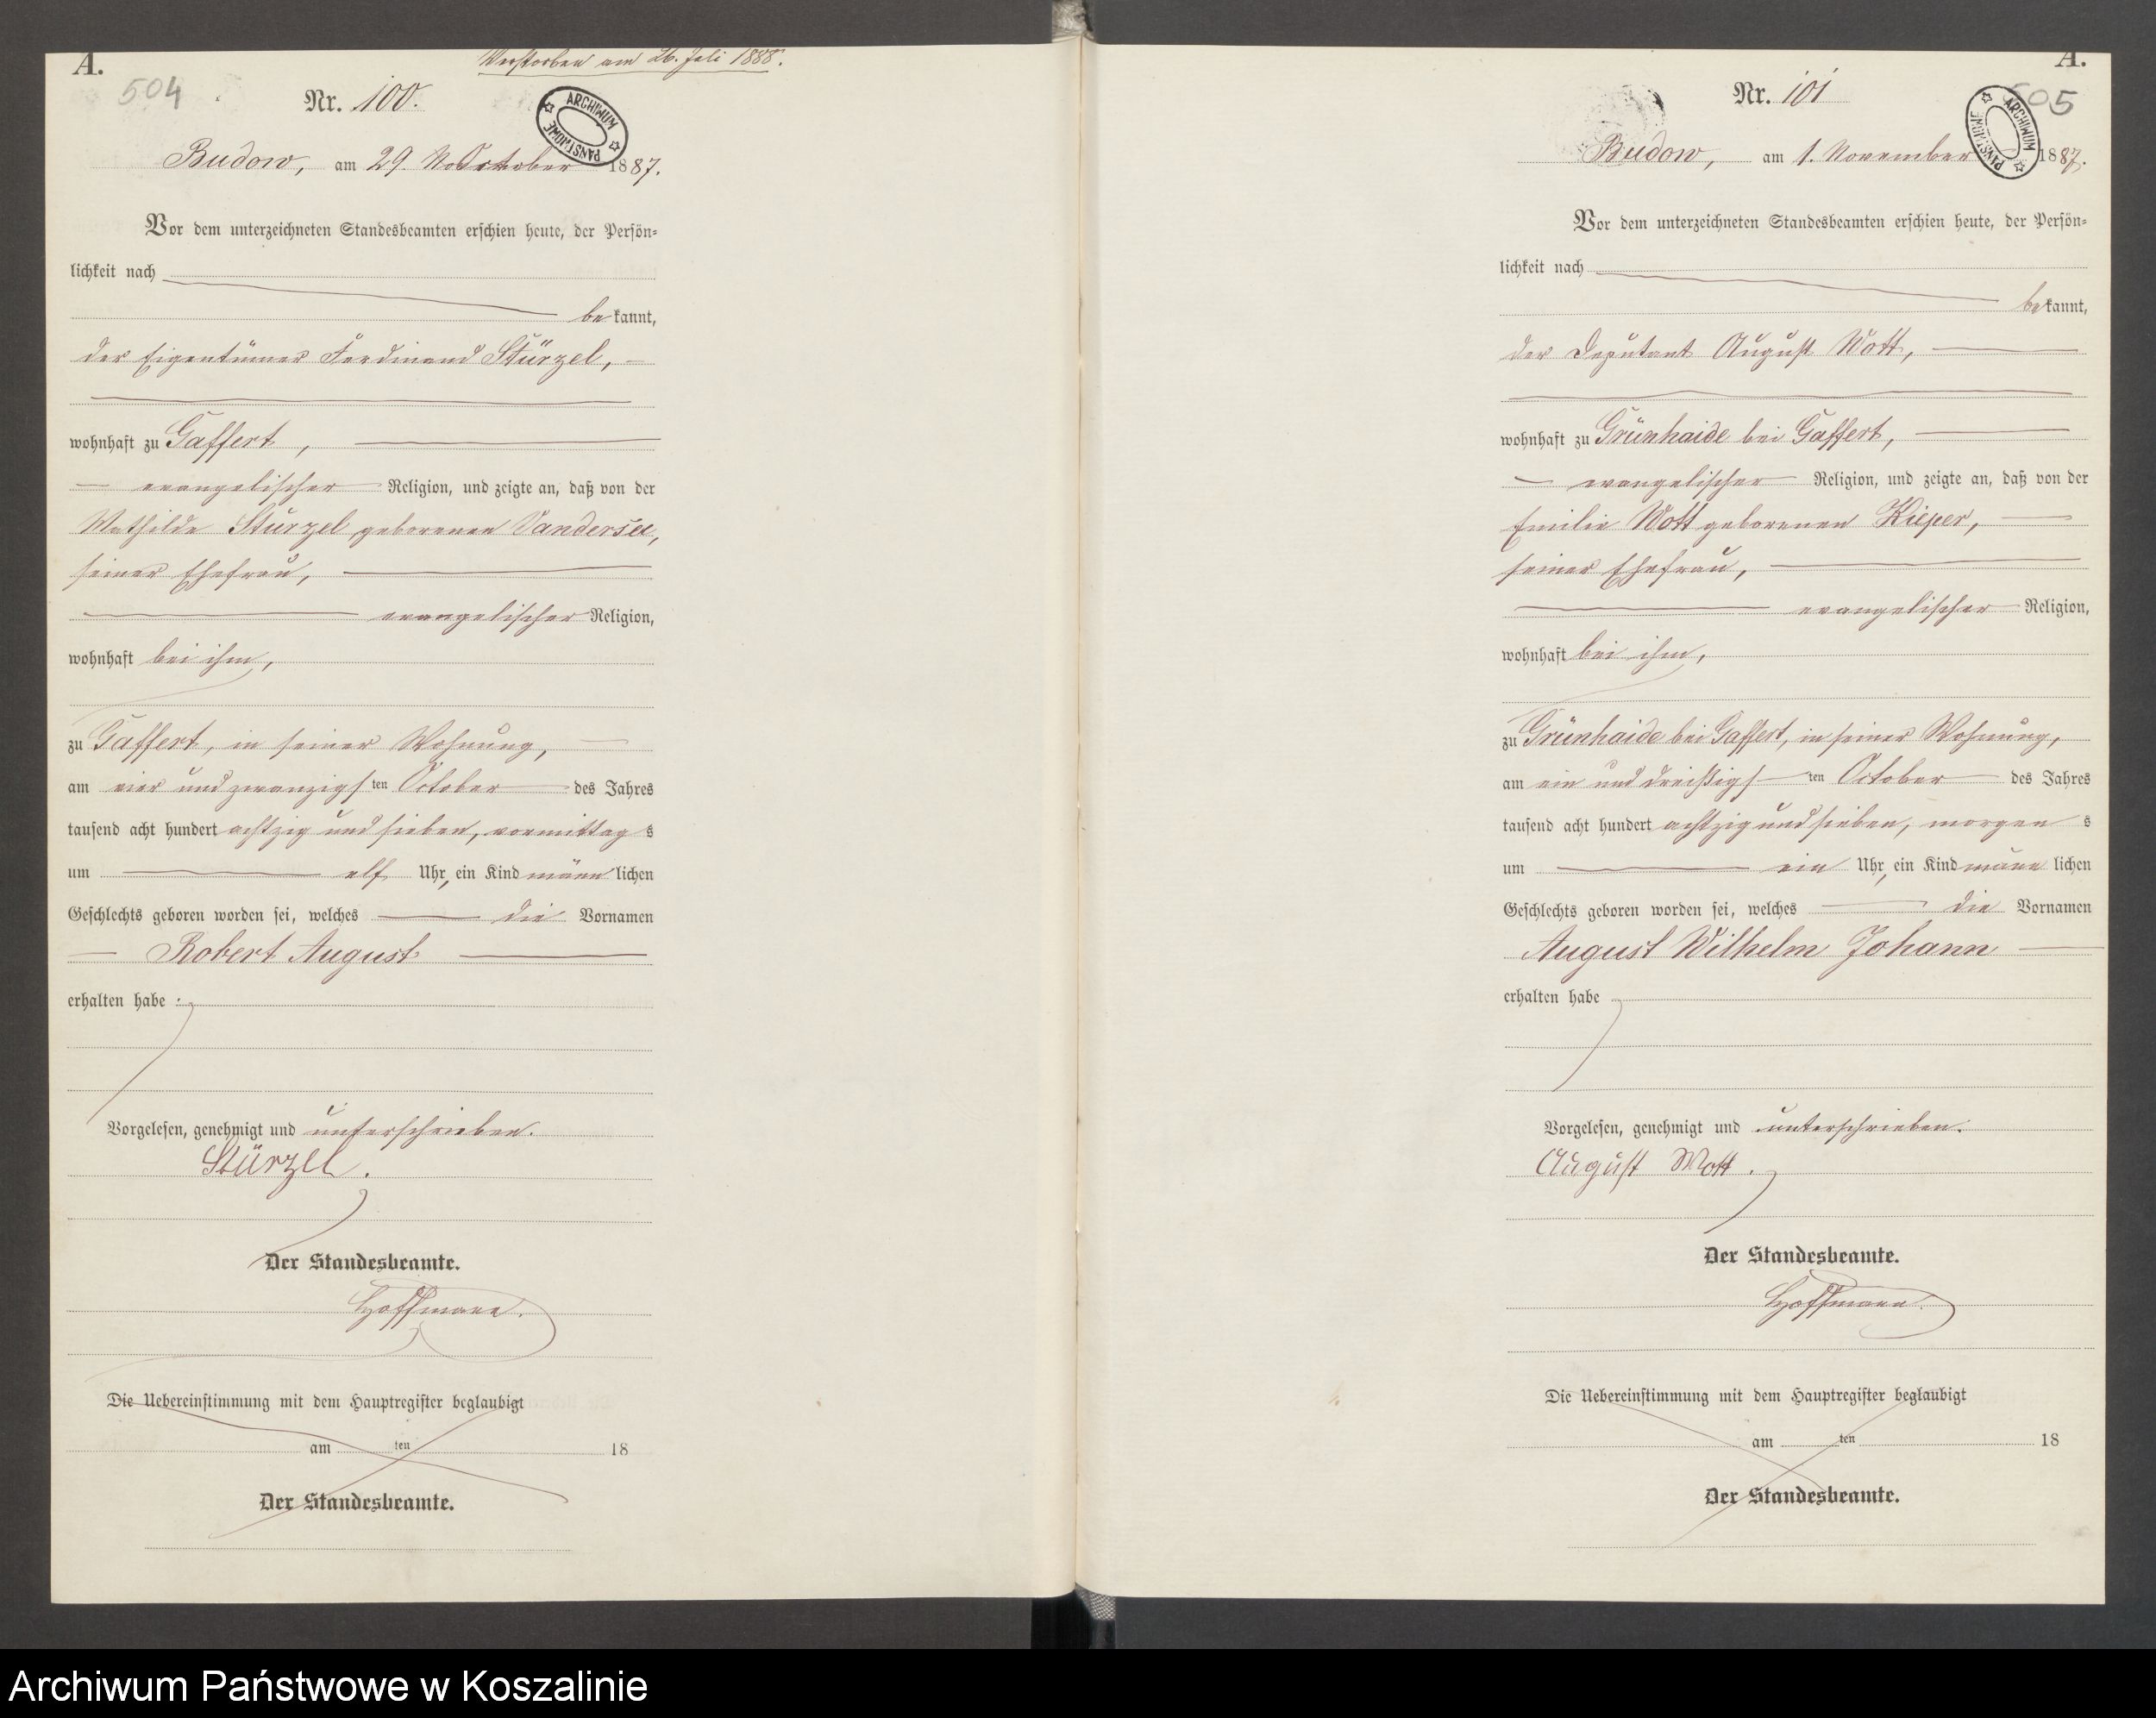 A.
Verstorben am 26. Juli 1888.
504
Nr. 100.
ARCHIWUM PAŃSTWOWE
Budow, am 29. October 1887.
Vor dem unterzeichneten Standesbeamten erschien heute, der Persön-
lichkeit nach
bekannt,
der Eigentümer Ferdinand Stürzel,
wohnhaft zu Gaffert,
evangelischer Religion, und zeigte an, daß von der
Mathilde Stürzel, geborenen
seiner Ehefrau,
evangelischer Religion,
wohnhaft bei ihm,
zu Gaffert, in seiner Wohnung,
am vier und zwanzigsten October des Jahres
tausend acht hundert achtzig und sieben, vormittags
um elf Uhr, ein Kind männlichen
Geschlechts geboren worden sei, welches die Vornamen
Robert August
erhalten habe.
Vorgelesen, genehmigt und unterschrieben.
Stürzel.
Der Standesbeamte.
Hoffmann.
Die Uebereinstimmung mit dem Hauptregister beglaubigt
am ten 18
Der Standesbeamte.
A.
505
Nr. 101
ARCHIWUM PAŃSTWOWE
Budow, am 1. November 1887.
Vor dem unterzeichneten Standesbeamten erschien heute, der Persön-
lichkeit nach
bekannt,
der Deputant August Wott,
wohnhaft zu Grünhaide bei Gaffert,
evangelischer Religion, und zeigte an, daß von der
Emilie Wott geborenen Kieper,
seiner Ehefrau,
evangelischer Religion,
wohnhaft bei ihm,
zu Grünhaide bei Gaffert, in seiner Wohnung,
am ein und dreißigsten October des Jahres
tausend acht hundert achtzig und sieben, morgens
um ein Uhr, ein Kind männlichen
Geschlechts geboren worden sei, welches die Vornamen
August Wilhelm Johann
erhalten habe
Vorgelesen, genehmigt und unterschrieben.
August Wott.
Der Standesbeamte.
Hoffmann.
Die Uebereinstimmung mit dem Hauptregister beglaubigt
am ten 18
Der Standesbeamte.
Archiwum Państwowe w Koszalinie